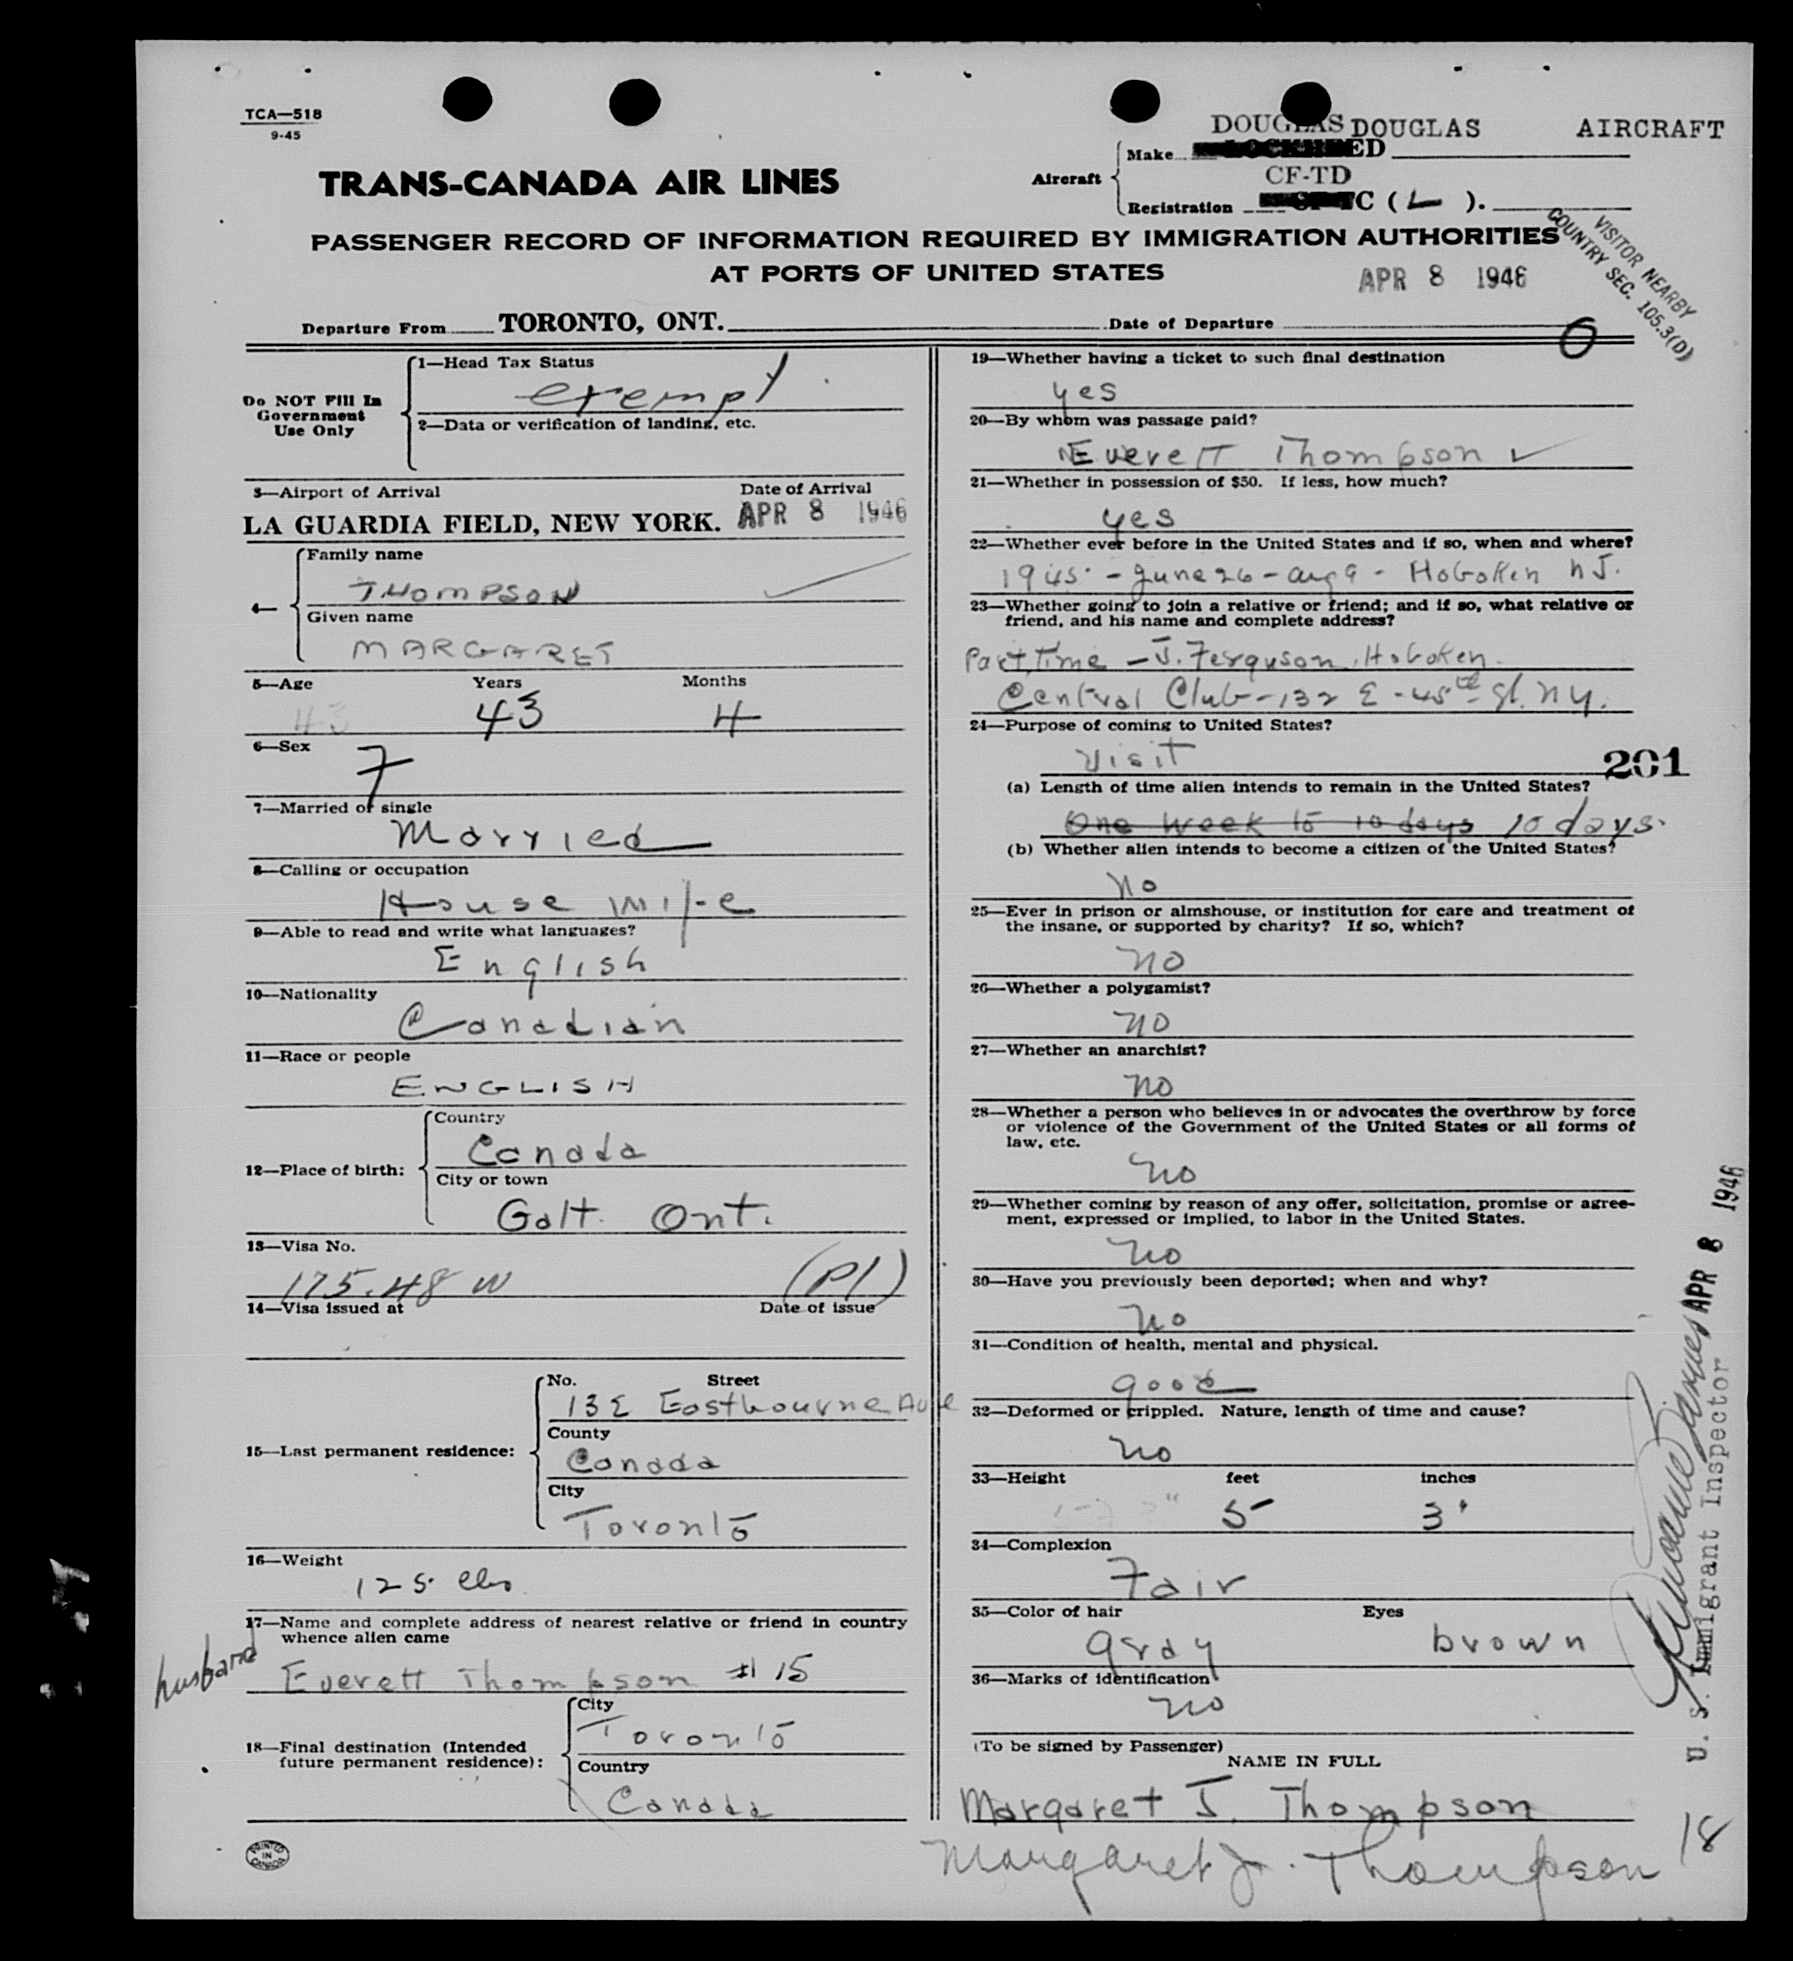 TCA—518
9-45
DOUGLAS DOUGLAS AIRCRAFT
Aircraft
Make
CF-TD
Registration C ( L ).
TRANS-CANADA AIR LINES
PASSENGER RECORD OF INFORMATION REQUIRED BY IMMIGRATION AUTHORITIES
AT PORTS OF UNITED STATES
APR 8 1946
VISITOR NEARBY
COUNTRY SEC. 105.3(D)
Departure From TORONTO, ONT.
Date of Departure
Do NOT Fill In
Government
Use Only
1—Head Tax Status
exempt
2—Data or verification of landing, etc.
3—Airport of Arrival Date of Arrival
LA GUARDIA FIELD, NEW YORK. APR 8 1946
4—
Family name
THOMPSON
Given name
MARGARET
5—Age Years Months
43 43 4
6—Sex
F
7—Married or single
Married
8—Calling or occupation
House Wife
9—Able to read and write what languages?
English
10—Nationality
Canadian
11—Race or people
ENGLISH
12—Place of birth:
Country
Canada
City or town
Galt Ont.
13—Visa No.
175.48 W (P1)
14—Visa issued at Date of issue
15—Last permanent residence:
No. Street
13 E Eastbourne Ave
County
Canada
City
Toronto
16—Weight
125 lbs
17—Name and complete address of nearest relative or friend in country
whence alien came
husband
Everett Thompson #15
18—Final destination (Intended
future permanent residence):
City
Toronto
Country
Canada
PRINTED
IN
CANADA
19—Whether having a ticket to such final destination
yes
20—By whom was passage paid?
Everett Thompson
21—Whether in possession of $50. If less, how much?
yes
22—Whether ever before in the United States and if so, when and where?
1945 - June 26 - aug 9 - Hoboken NJ.
23—Whether going to join a relative or friend; and if so, what relative or
friend, and his name and complete address?
Part Time - J. Ferguson, Hoboken.
Central Club - 132 E - 45th St. NY.
24—Purpose of coming to United States?
Visit
201
(a) Length of time alien intends to remain in the United States?
One week to 10 days 10 days.
(b) Whether alien intends to become a citizen of the United States?
No
25—Ever in prison or almshouse, or institution for care and treatment of
the insane, or supported by charity? If so, which?
no
26—Whether a polygamist?
no
27—Whether an anarchist?
no
28—Whether a person who believes in or advocates the overthrow by force
or violence of the Government of the United States or all forms of
law, etc.
no
29—Whether coming by reason of any offer, solicitation, promise or agree-
ment, expressed or implied, to labor in the United States.
no
30—Have you previously been deported; when and why?
no
31—Condition of health, mental and physical.
good
32—Deformed or crippled. Nature, length of time and cause?
no
33—Height feet inches
5 3
34—Complexion
Fair
35—Color of hair Eyes
gray brown
36—Marks of identification
no
(To be signed by Passenger)
NAME IN FULL
Margaret J. Thompson
Margaret J. Thompson
18
APR 8 1946
U. S. Immigrant Inspector